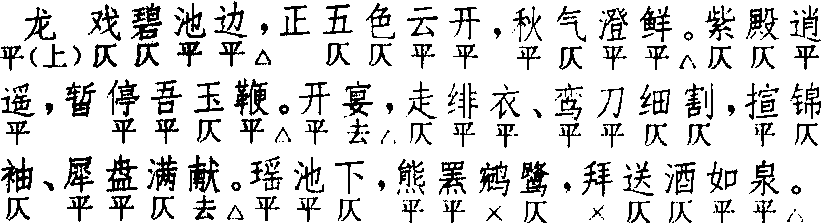 龙 戏碧池边，正五色云开，秋气澄鲜。紫殿逍
平(上)仄仄平平△ 仄仄平平 平仄平平△仄仄平
遥，暂停吾玉鞭。开宴，走绯衣、鸾刀细割，揎锦
平 平平仄平△平去△仄平平 平平仄仄 平仄
袖、犀盘满献。瑶池下，熊罴鹓鹭，拜送酒如泉。
仄 平平仄去△平平仄 平平×仄 ×仄仄平平△